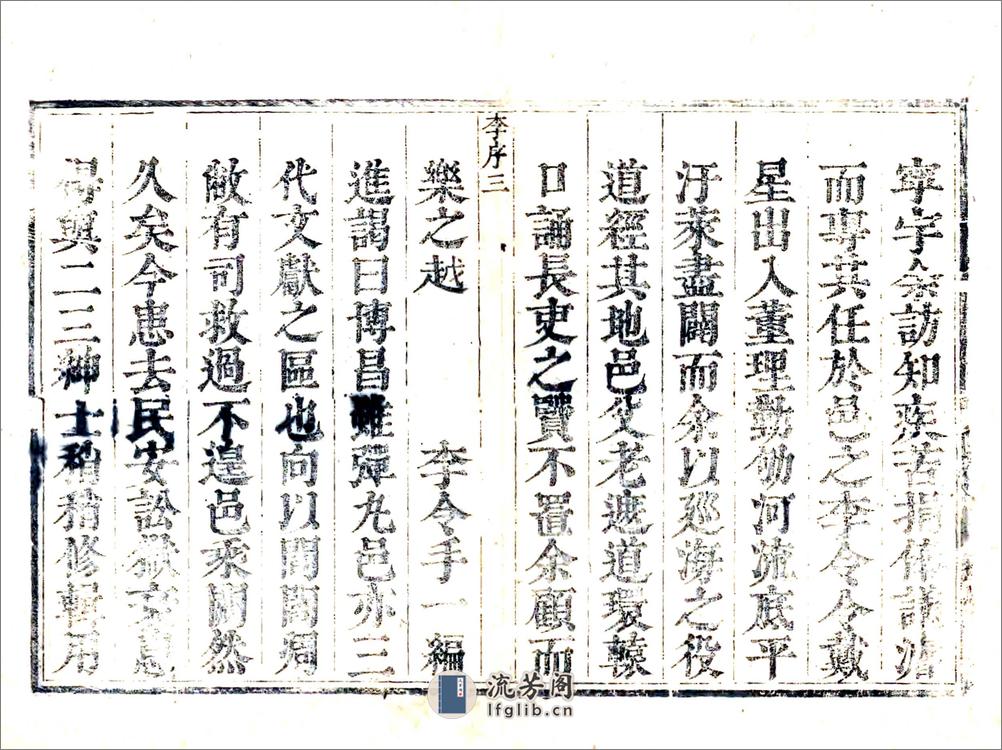 寧宇余訪知疾苦捐俸議濬
而專其任於邑之李令令戴
星出入董理勤劬河流底平
汙萊盡闢而余以廵海之役
道經其地邑父老遮道環轅
口誦長吏之賢不置余顧而
李序 三
樂之越 李令手一編
進謁曰博昌雖彈丸邑亦三
代文獻之區也向以閭閻凋
敝有司救過不遑邑乘闕然
久矣今患去民安訟獄衰息
得與二三紳士稍稍修輯用
流芳阁
lfglib.cn